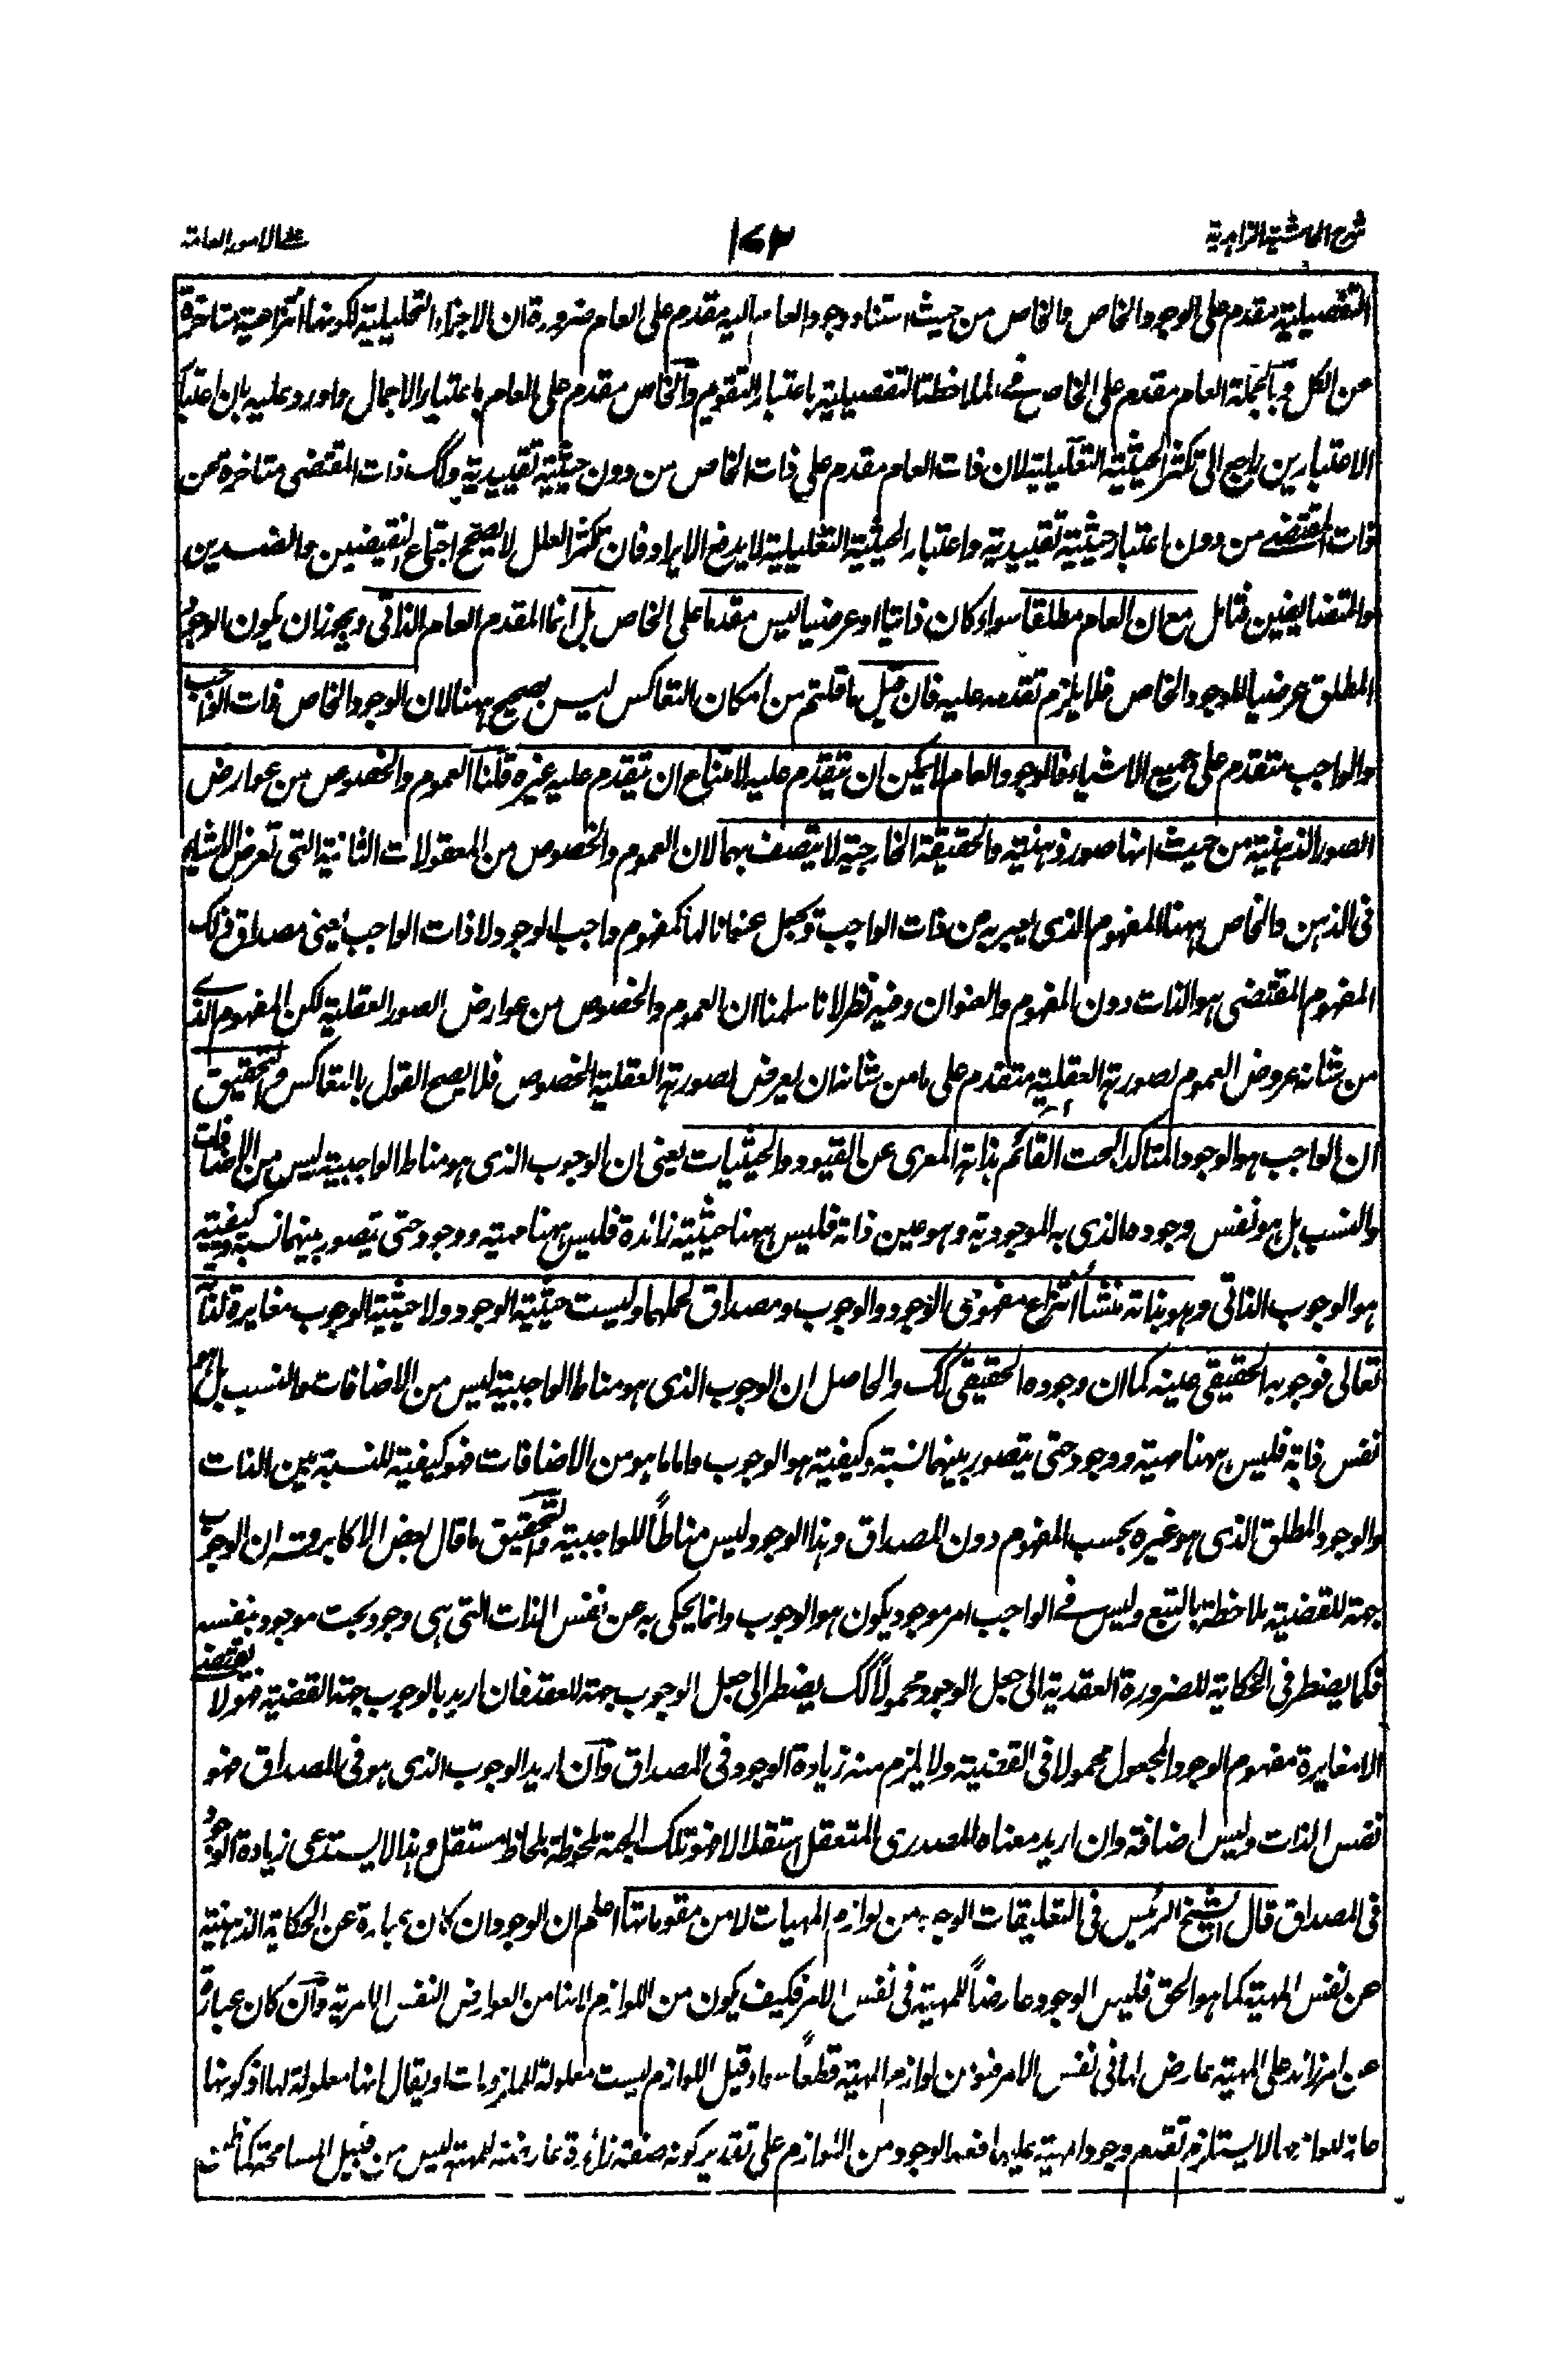 شرح الحاشية الزاهدية
١٧٢
على الامور العامة
التفصيلية مقدم على الوجود الخاص والخاص من حيث استناد وجود العام اليه مقدم على العام ضرورة ان الاجزاء التحليلية لكونها انتزاعية متاخرة
عن الكل وبالجملة العام مقدم على الخاص في الملاحظة التفصيلية باعتبار التقويم والخاص مقدم على العام باعتبار الاجمال واورد عليه بان اعتبار
الاعتبارين راجع الى تكثر الحيثية التعليلية لان ذات العام مقدم على ذات الخاص من دون حيثية تقييدية وكك ذات المقتضى متاخرة عن
ذات المقتضى من دون اعتبار حيثية تقييدية واعتبار الحيثية التعليلية لا يدفع الايراد فان تكثر العلل لا يصحح اجتماع النقيضين والضدين
والمتضايفين فتامل مع ان العام مطلقا سواء كان ذاتيا او عرضيا ليس مقدما على الخاص بل انما المقدم العام الذاتي ويجوز ان يكون الوجود
المطلق عرضيا للوجود الخاص فلا يلزم تقدمه عليه فان قيل ما قلتم من امكان التعاكس ليس بصحيح ههنا لان الوجود الخاص ذات الواجب
والواجب متقدم على جميع الاشياء فالوجود العام لا يمكن ان يتقدم عليه لامتناع ان يتقدم عليه غيره قلنا العموم والخصوص من عوارض
الصور الذهنية من حيث انها صور ذهنية والحقيقة الخارجية لا يتصف بهما لان العموم والخصوص من المعقولات الثانية التي تعرض للاشياء
في الذهن والخاص ههنا المفهوم الذي يعبر به عن ذات الواجب وتجعل عنوانا لها كمفهوم واجب الوجود لا ذات الواجب اعني مصداق ذلك
المفهوم المقتضى هو الذات دون المفهوم والعنوان وفيه نظر لانا سلمنا ان العموم والخصوص من عوارض الصور العقلية لكن المفهوم الذي
من شانه عروض العموم لصورته العقلية متقدم على ما من شانه ان يعرض لصورته العقلية الخصوص فلا يصح القول بالتعاكس والتحقيق
ان الواجب هو الوجود المتاكد البحت القائم بذاته المعرى عن القيود والحيثيات يعني ان الوجوب الذي هو مناط الواجبية ليس من الاضافات
والنسب بل هو نفس وجوده الذي به الموجودية وهو عين ذاته فليس ههنا حيثية زائدة فليس ههنا مهية ووجود حتى يتصور بينهما نسبة وكيفية
هو الوجوب الذاتي وهو بذاته منشأ انتزاع مفهومي الوجود والوجوب ومصداق لحملهما وليست حيثية الوجود ولا حيثية الوجوب مغايرة لذاته
تعالى فوجوبه الحقيقي عينه كما ان وجوده الحقيقي كك والحاصل ان الوجوب الذي هو مناط الواجبية ليس من الاضافات والنسب بل هو
نفس ذاته فليس ههنا مهية ووجود حتى يتصور بينهما نسبة وكيفية هو الوجوب واما ما هو من الاضافات فهو كيفية للنسبة بين الذات
والوجود المطلق الذي هو غيره بحسب المفهوم دون المصداق وهذا الوجود ليس مناطاً للواجبية والتحقيق ما قال بعض الاكابر قده ان الوجوب
جهة للقضية ملاحظة بالتبع وليس في الواجب امر موجود يكون هو الوجوب وانما يحكى به عن نفس الذات التي هي وجود بحت موجود بنفسه
فكما يضطر في الحكاية للضرورة العقدية الى جعل الوجود محمولاً كك يضطر الى جعل الوجوب جهة للعقد فان اريد بالوجوب جهة القضية فهو لا يقتضي
الا مغايرة مفهوم الوجود المجعول محمولا في القضية ولا يلزم منه زيادة الوجود في المصداق وان اريد الوجوب الذي هو في المصداق فهو
نفس الذات وليس اضافة وان اريد معناه المصدري المتعقل استقلالا فهو تلك الجهة ملحوظة بلحاظ مستقل وهذا لا يستدعي زيادة الوجود
في المصداق قال الشيخ الرئيس في التعليقات الوجود من لوازم المهيات لا من مقوماتها اعلم ان الوجود ان كان عبارة عن الحكاية الذهنية
عن نفس المهية كما هو الحق فليس الوجود عارضاً للمهية في نفس الامر فكيف يكون من اللوازم لانها من العوارض النفس الامرية وان كان عبارة
عن امر زائد على المهية عارض لها في نفس الامر فهو من لوازم المهية قطعاً سواء قيل اللوازم ليست معلولة للملزومات او يقال انها معلولة لها اذ كونها
علة للوازمها لا يستلزم تقدم وجود المهية عليها فعد الوجود من اللوازم على تقدير كونه صفة زائدة عارضة للمهية ليس من قبيل المسامحة كما ظن